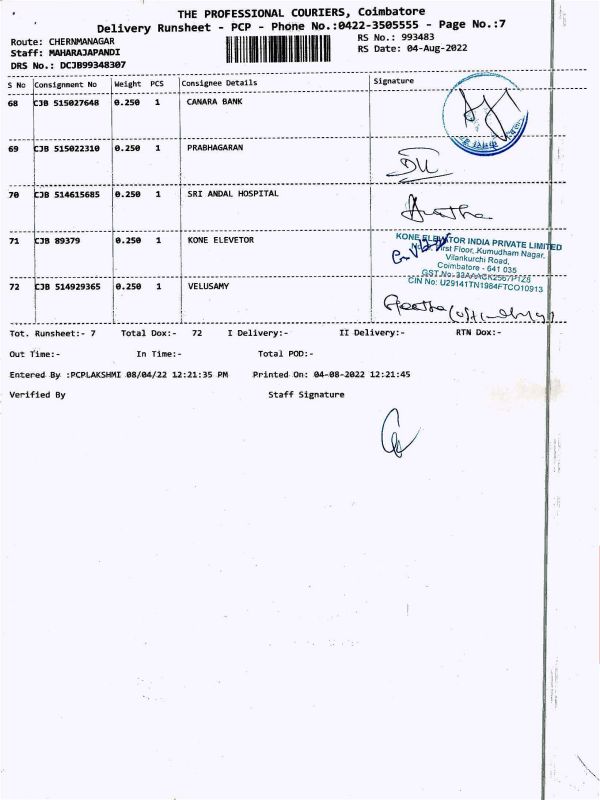 THE PROFESSIONAL COURIERS, Coimbatore
Delivery Runsheet - PCP - Phone No.:0422-3505555 - Page No.:7
Route: CHERNMANAGAR
RS No.: 993483
Staff: MAHARAJAPANDI
RS Date: 04-Aug-2022
DRS No.: DCJB99348307
S No Consignment No Weight PCS Consignee Details Signature
68 CJB 515027648 0.250 1 CANARA BANK
69 CJB 515022310 0.250 1 PRABHAGARAN
70 CJB 514615685 0.250 1 SRI ANDAL HOSPITAL
71 CJB 89379 0.250 1 KONE ELEVETOR
KONE ELEVATOR INDIA PRIVATE LIMITED
First Floor, Kumudham Nagar,
Vilankurchi Road,
Coimbatore - 641 035
GST No:
CIN No: U29141TN1984FTCO10913
72 CJB 514929365 0.250 1 VELUSAMY
Tot. Runsheet:- 7 Total Dox:- 72 I Delivery:- II Delivery:- RTN Dox:-
Out Time:- In Time:- Total POD:-
Entered By :PCPLAKSHMI 08/04/22 12:21:35 PM Printed On: 04-08-2022 12:21:45
Verified By Staff Signature